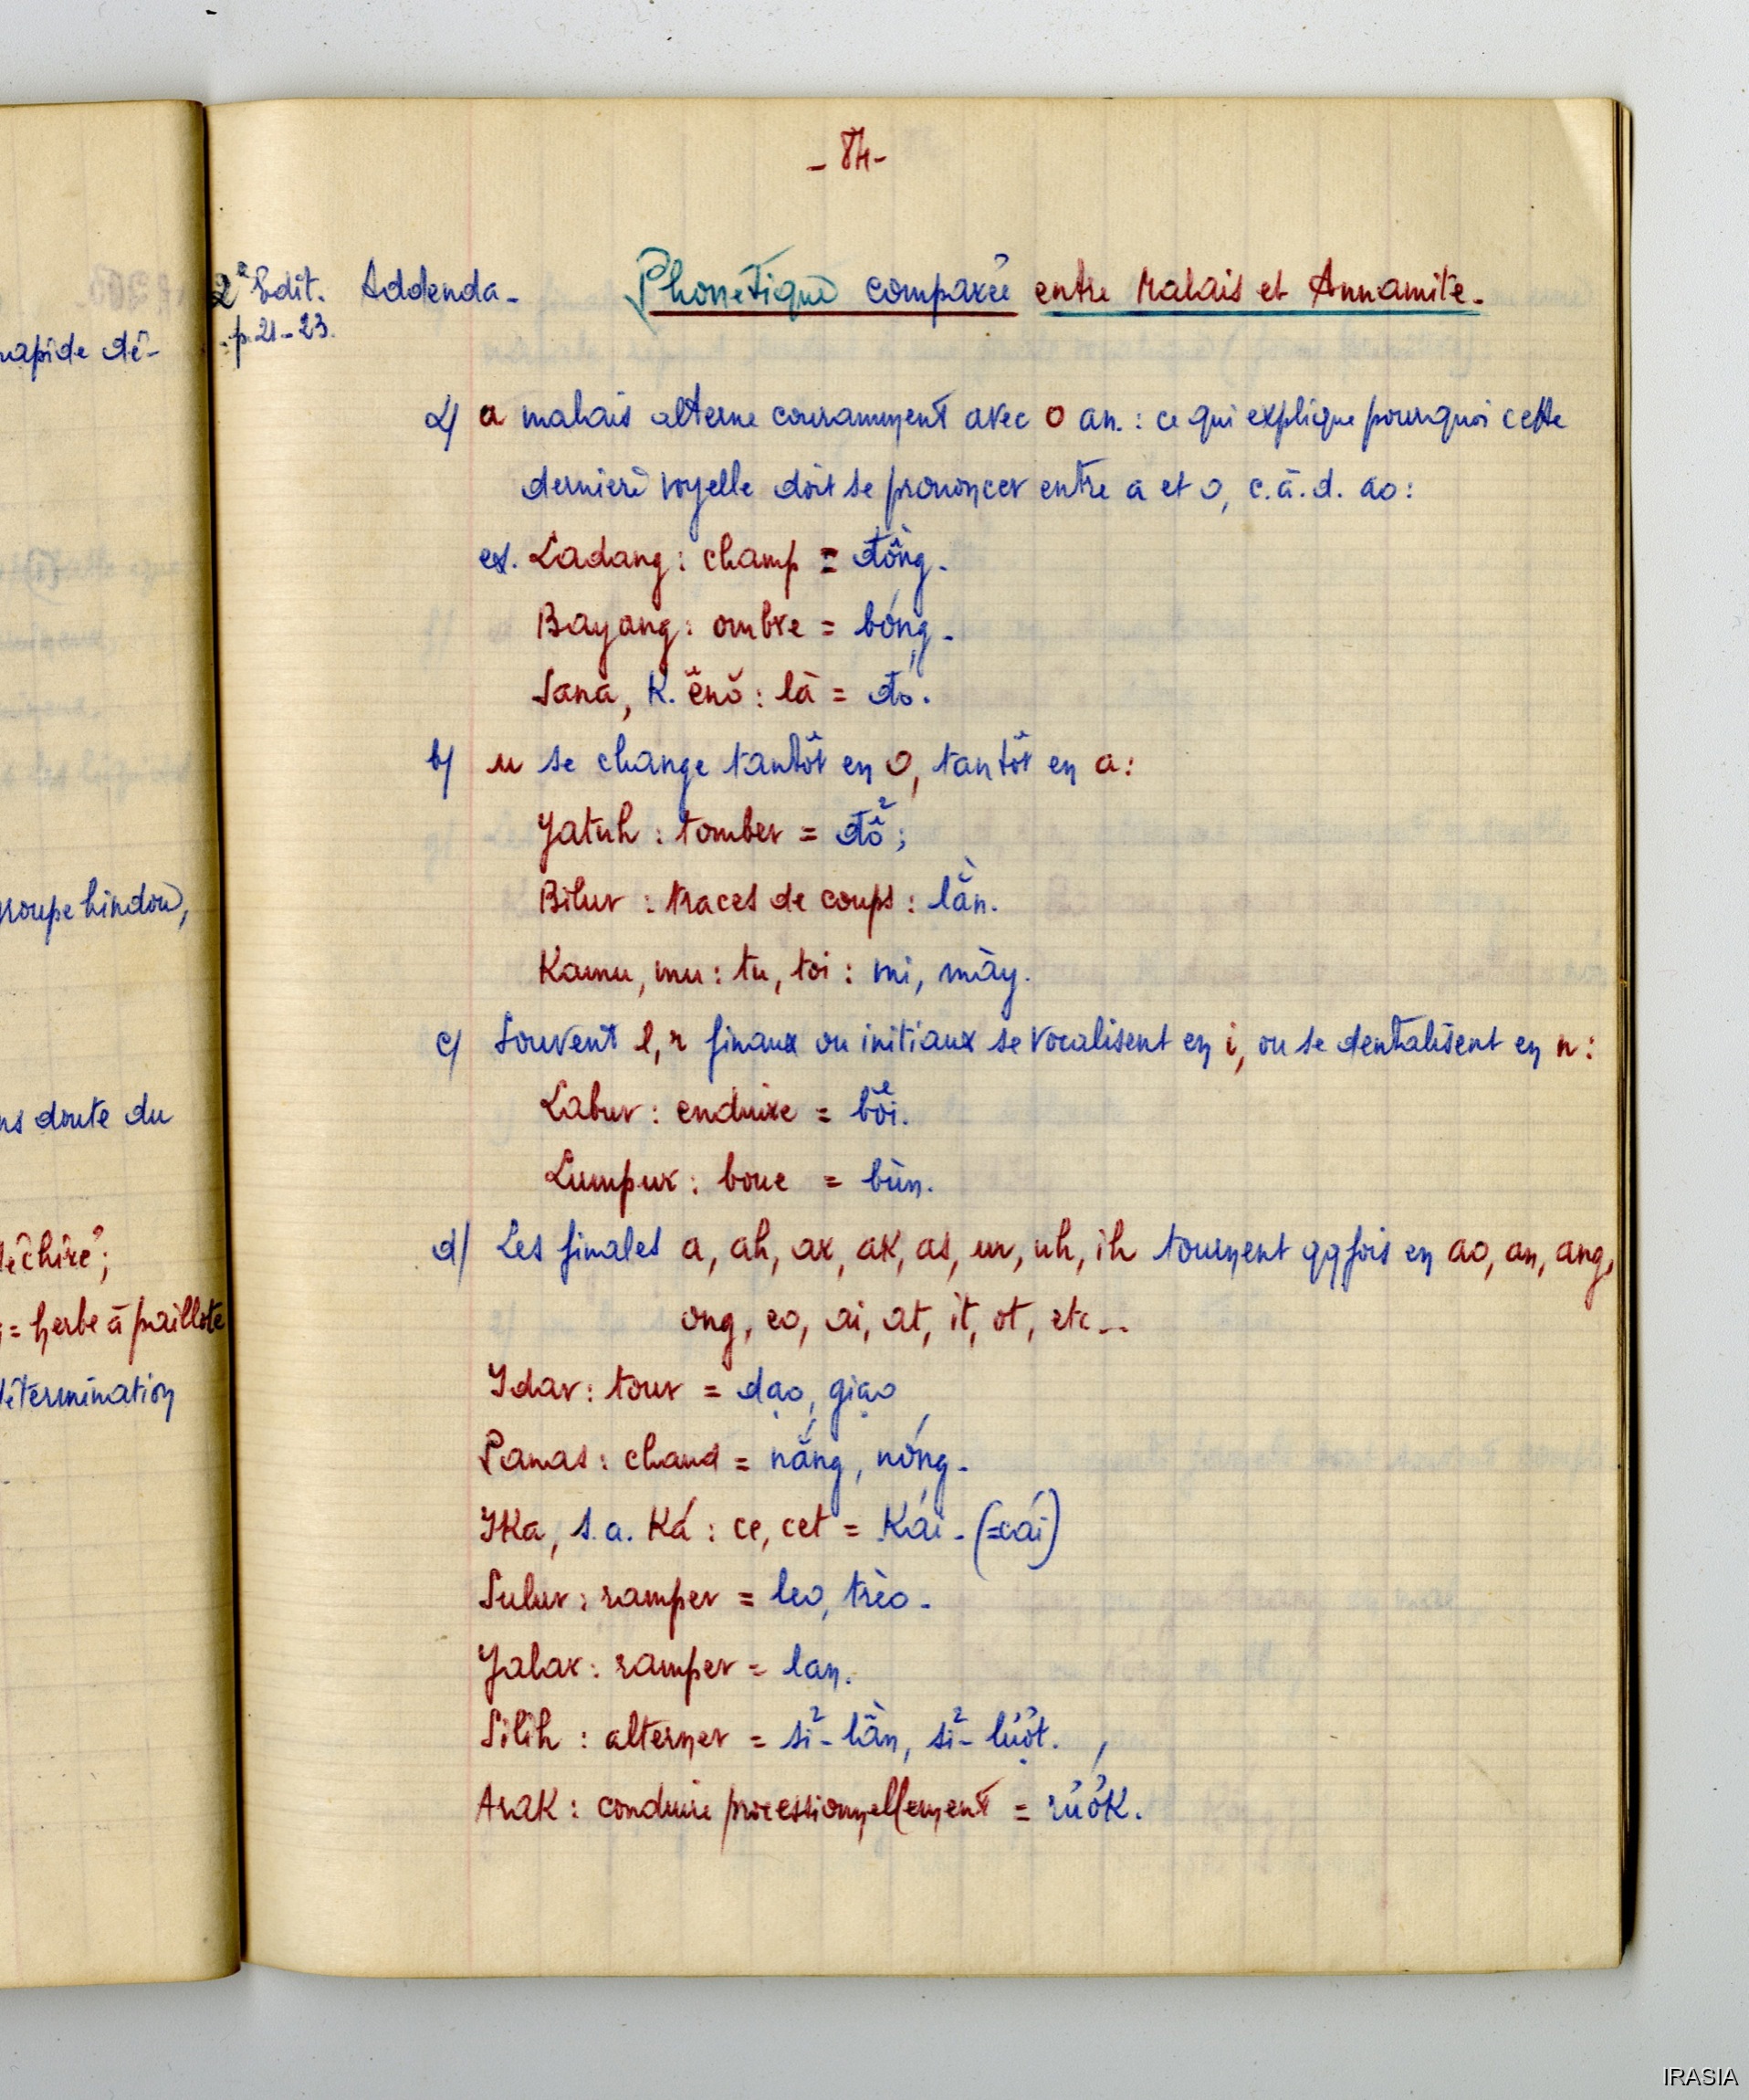 - 84 -
2e Edit. Addenda - Phonétique comparée entre Malais et Annamite.
p. 21-23.
a) a malais alterne couramment avec o an. : ce qui explique pourquoi cette
dernière voyelle doit se prononcer entre a et o, c.à.d. ao :
ex. Ladang : champ = đồng.
Bayang : ombre = bóng.
Sana, K. ĕnŏ : là = đó.
b) u se change tantôt en o, tantôt en a :
Yatuh : tomber = đổ ;
Bilur : traces de coups : lằn.
Kamu, mu : tu, toi : mi, mày.
c) Souvent l, r finaux ou initiaux se vocalisent en i, ou se dentalisent en n :
Labur : enduire = bôi.
Lumpur : boue = bùn.
d) Les finales a, ah, ar, ak, as, ur, uh, ih tournent qqfois en ao, an, ang,
ong, eo, ai, at, it, ot, etc...
Idar : tour = dạo, giạo
Panas : chaud = nắng, nóng.
Ika, s.a. Ká : ce, cet = Kái - (=cái)
Sulur : ramper = leo, trèo.
Yalar : ramper = lan.
Silih : alterner = sỉ - lần, sỉ - lượt.
Arak : conduire processionnellement = rướk.
rapide dé-
groupe hindou,
ns doute du
déchiré ;
= herbe à paillote
détermination
IRASIA